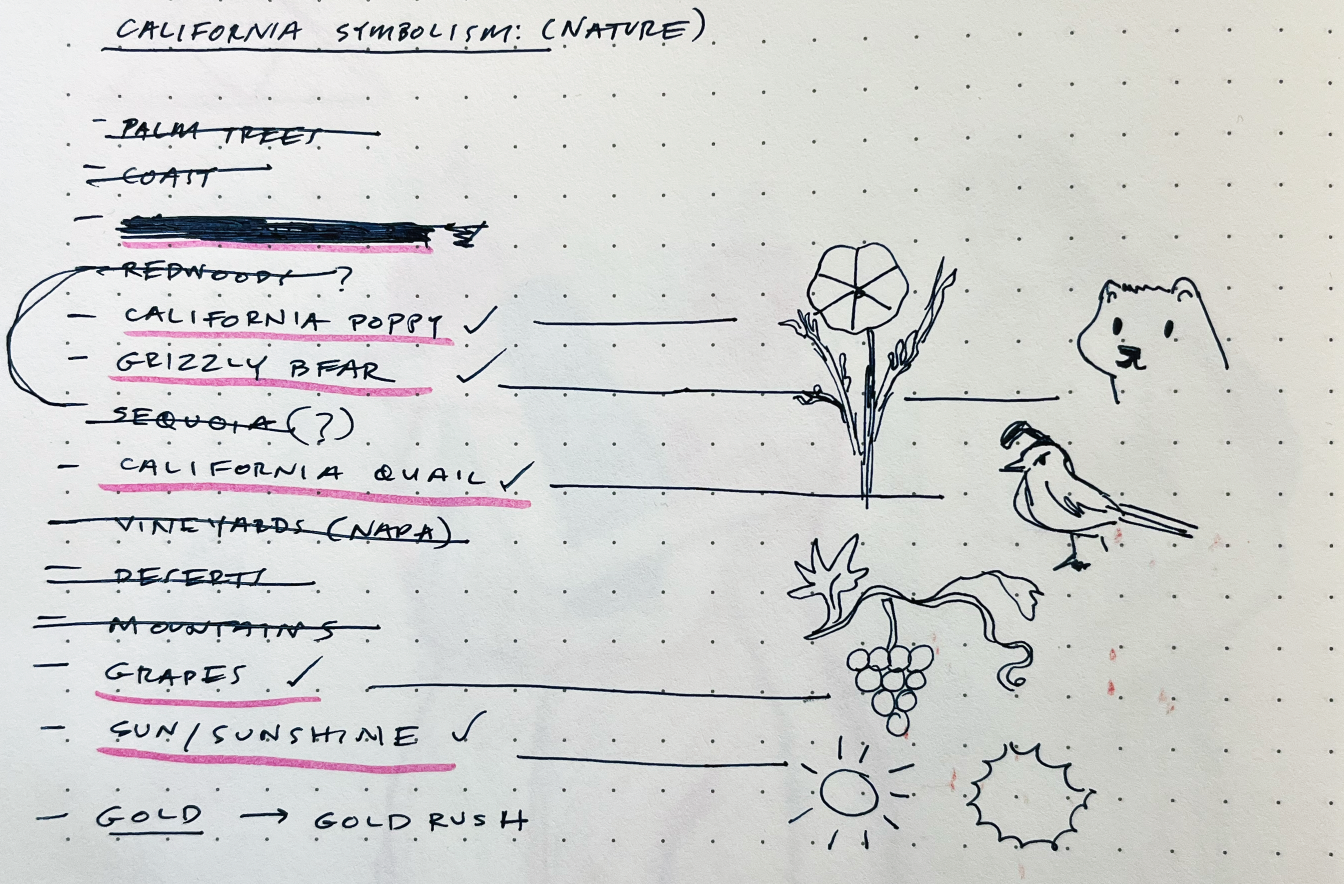 CALIFORNIA SYMBOLISM: (NATURE)
- PALM TREES
- COAST
-
- REDWOODS ?
- CALIFORNIA POPPY ✓
- GRIZZLY BEAR ✓
- SEQUOIA (?)
- CALIFORNIA QUAIL ✓
- VINEYARDS (NAPA)
- DESERTS
- MOUNTAINS
- GRAPES ✓
- SUN/SUNSHINE ✓
- GOLD → GOLD RUSH